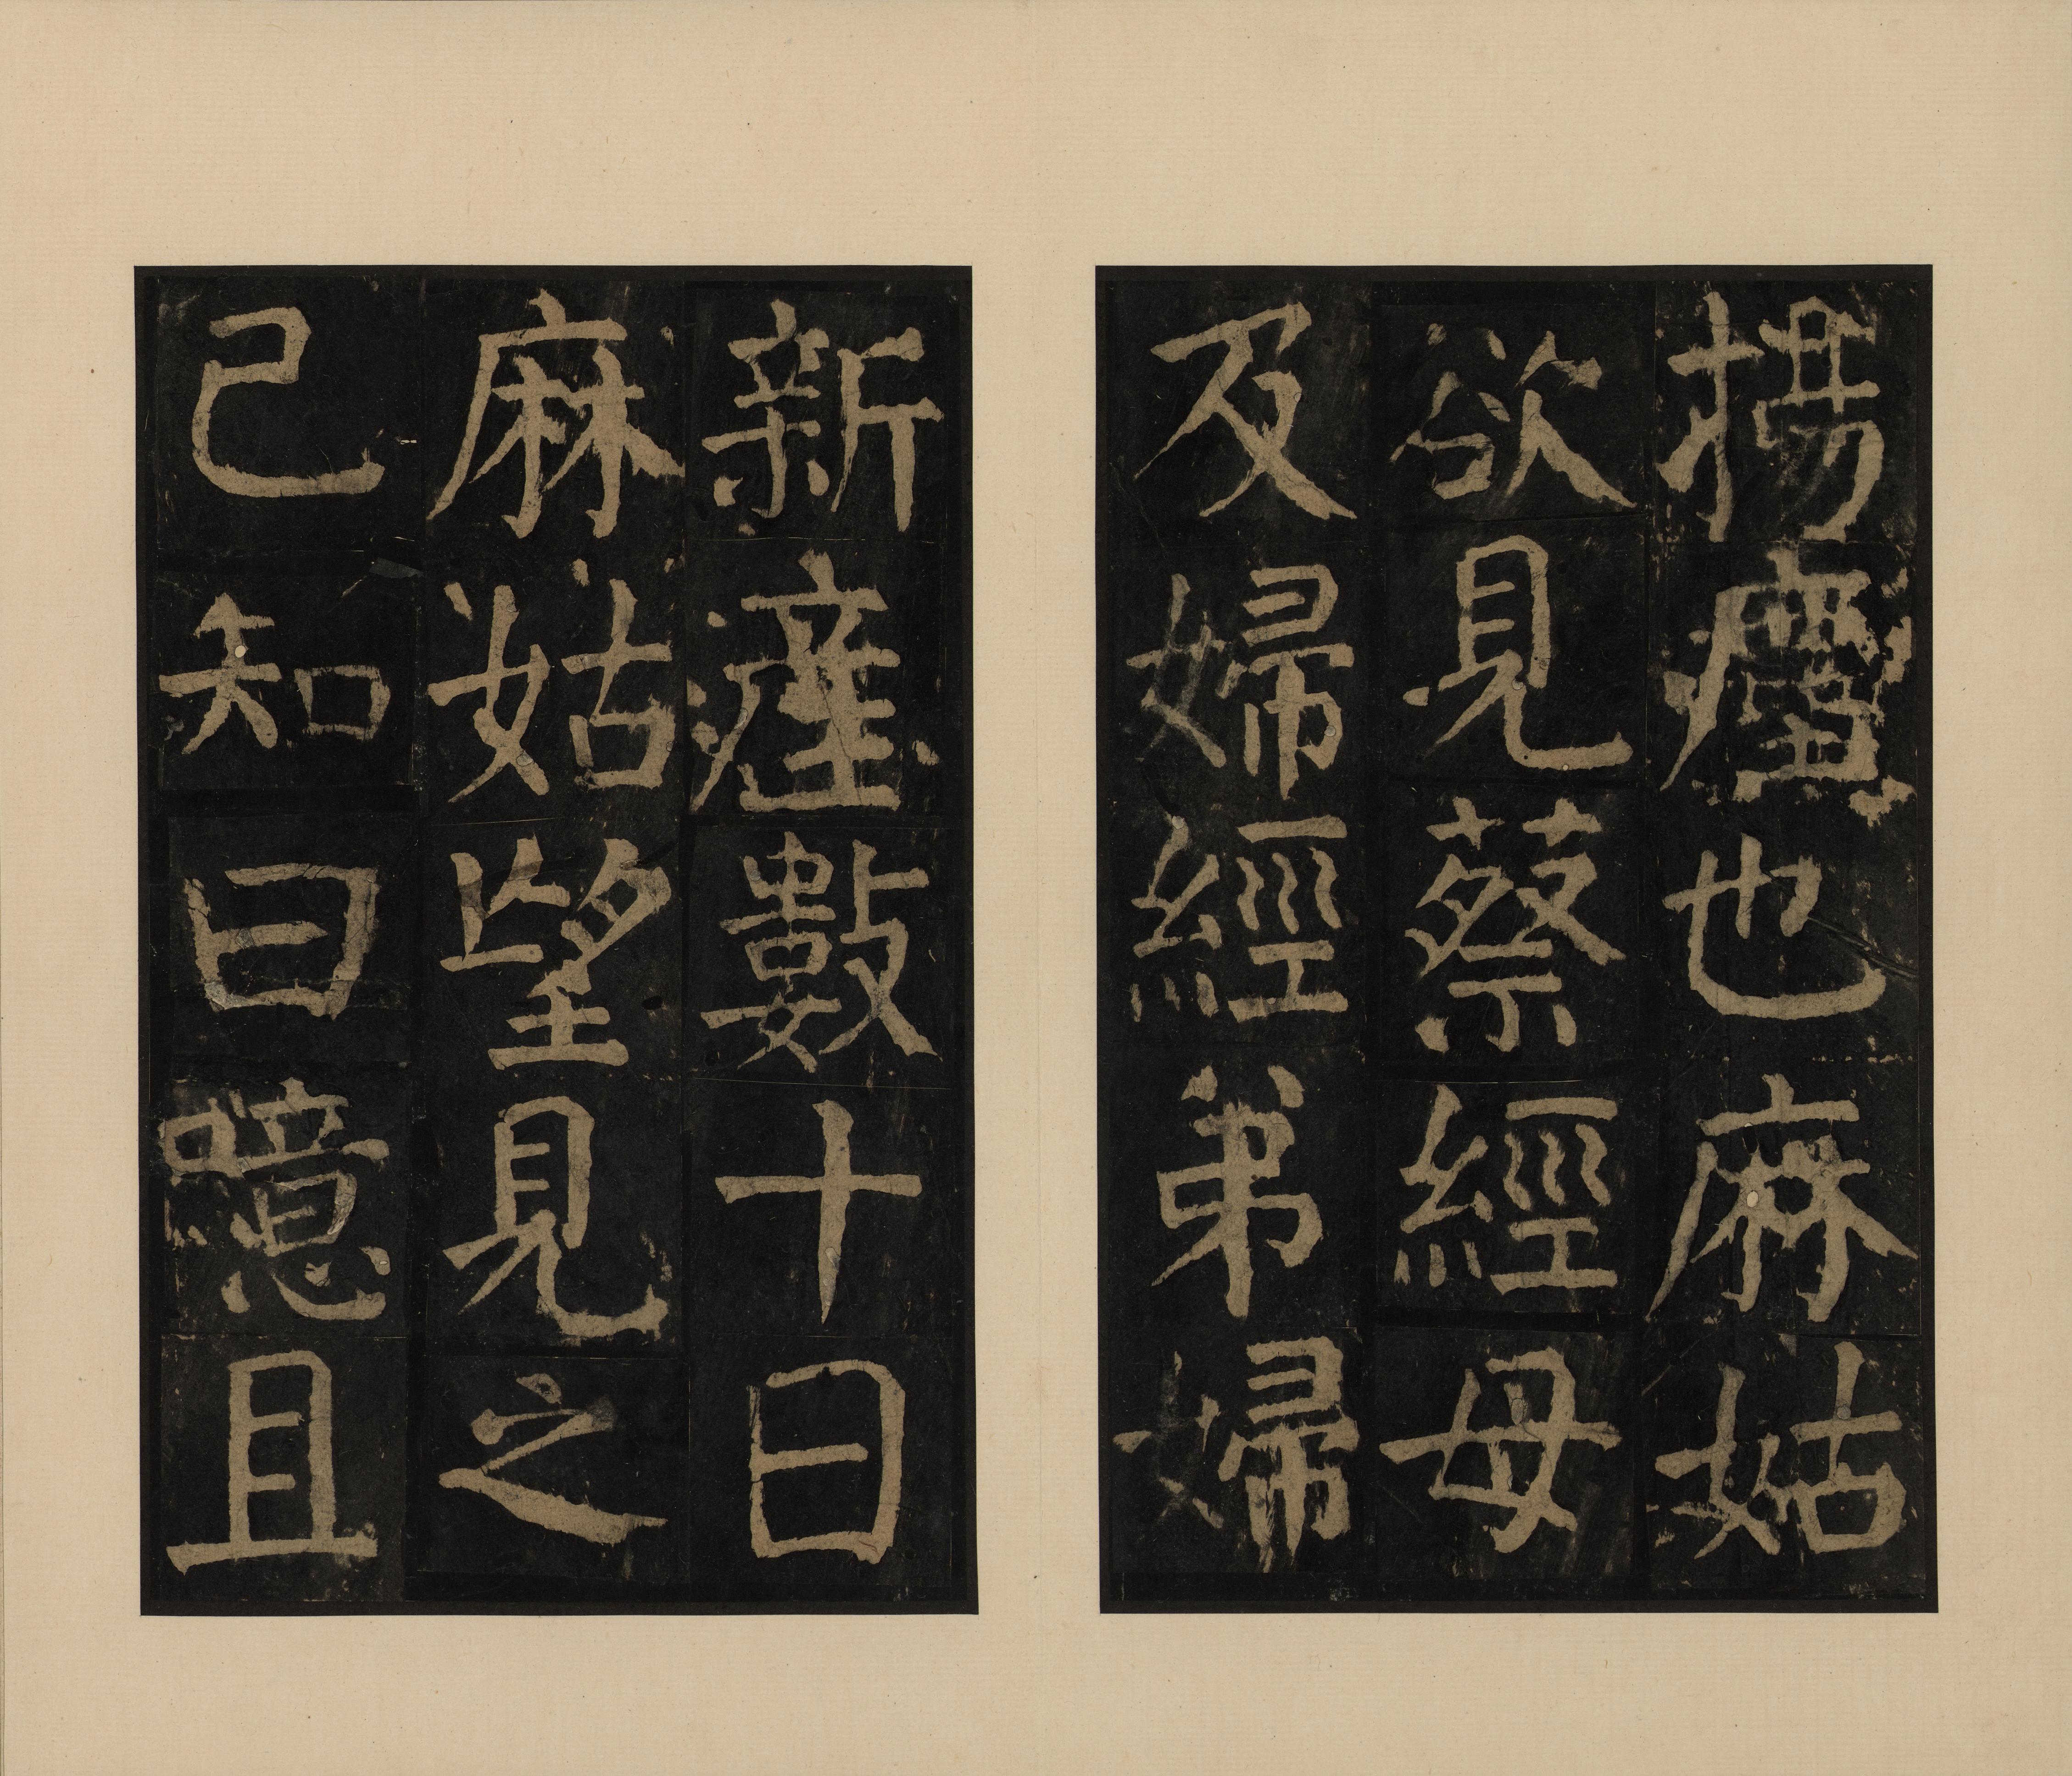 揚塵也麻姑
欲見蔡經母
及婦經弟婦
新產數十日
麻姑望見之
已知曰噫且